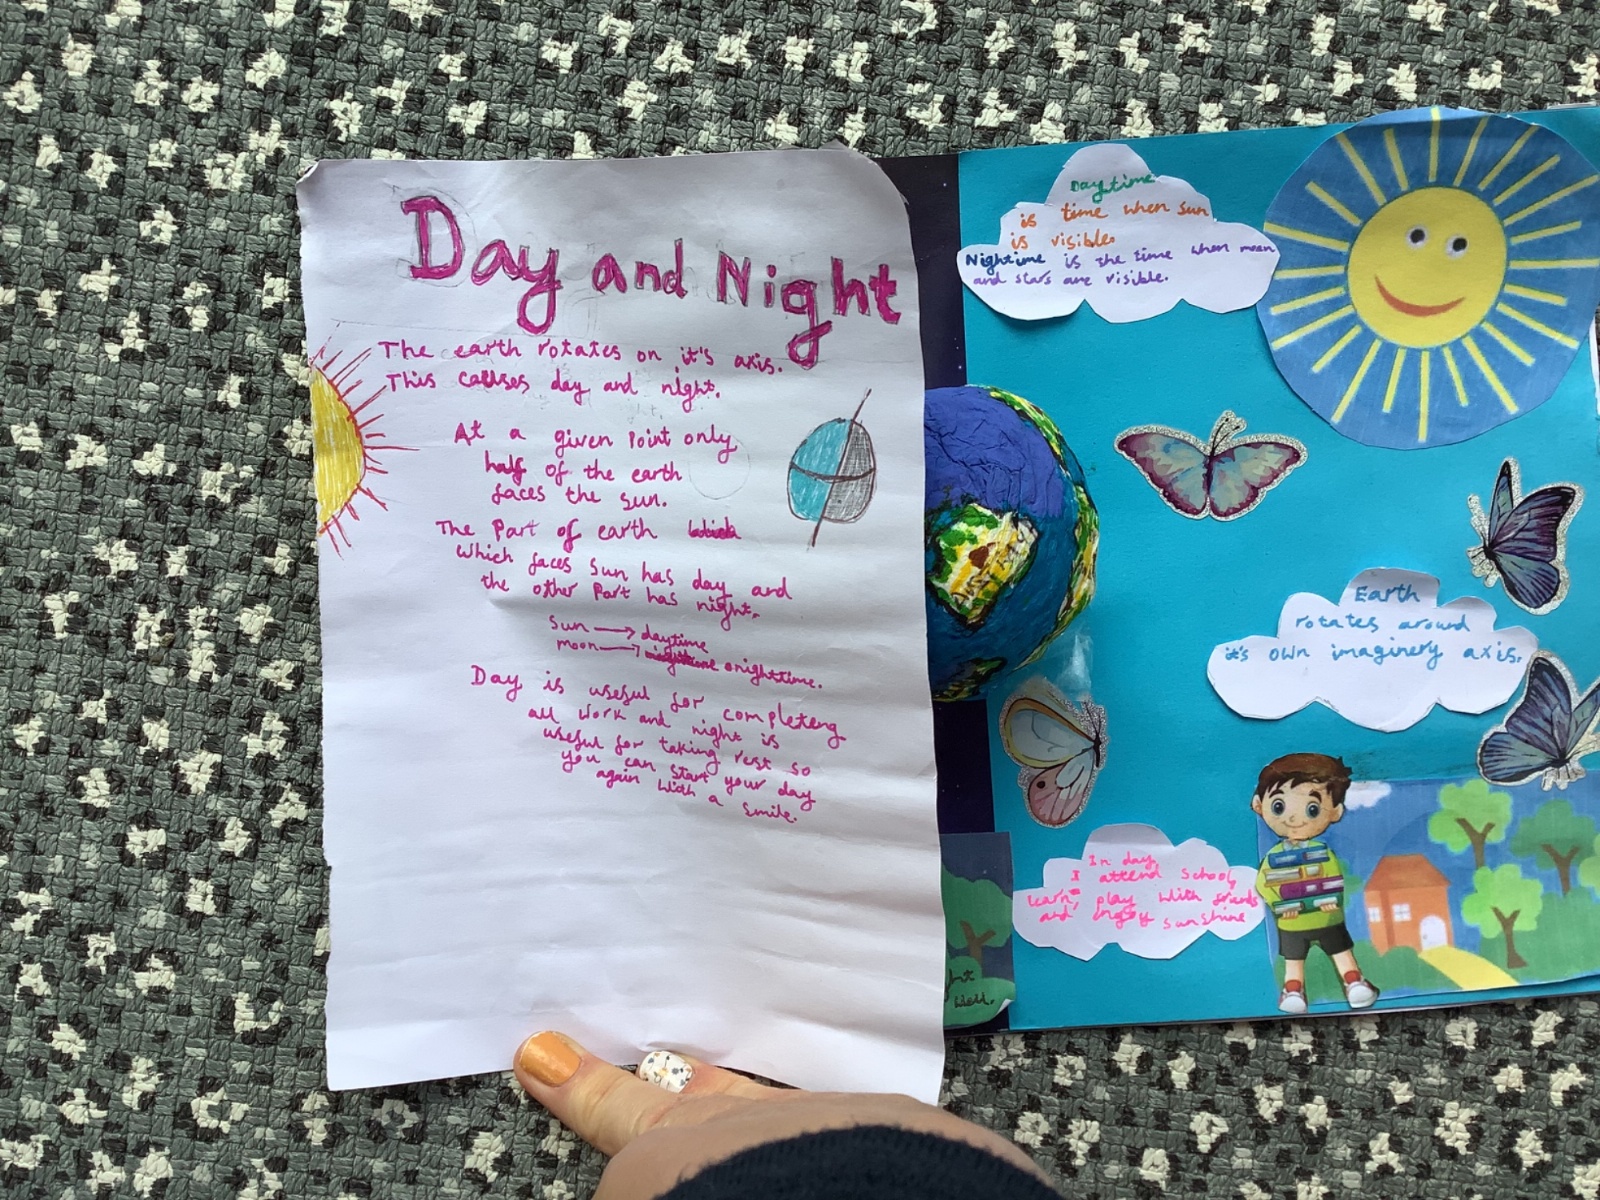 Day and Night
The earth rotates on it's axis.
This causes day and night.
At a given point only
half of the earth
faces the sun.
The part of earth
which faces sun has day and
the other part has night.
Sun → daytime
moon → nighttime.
Day is useful for completeng
all work and night is
useful for taking rest so
you can start your day
again with a smile.
Daytime
is time when sun
is visible.
Nightime is the time when moon
and stars are visible.
Earth
rotates around
it's own imaginery axis.
In day,
I attend school,
learn, play with friends
and enjoy sunshine
well.